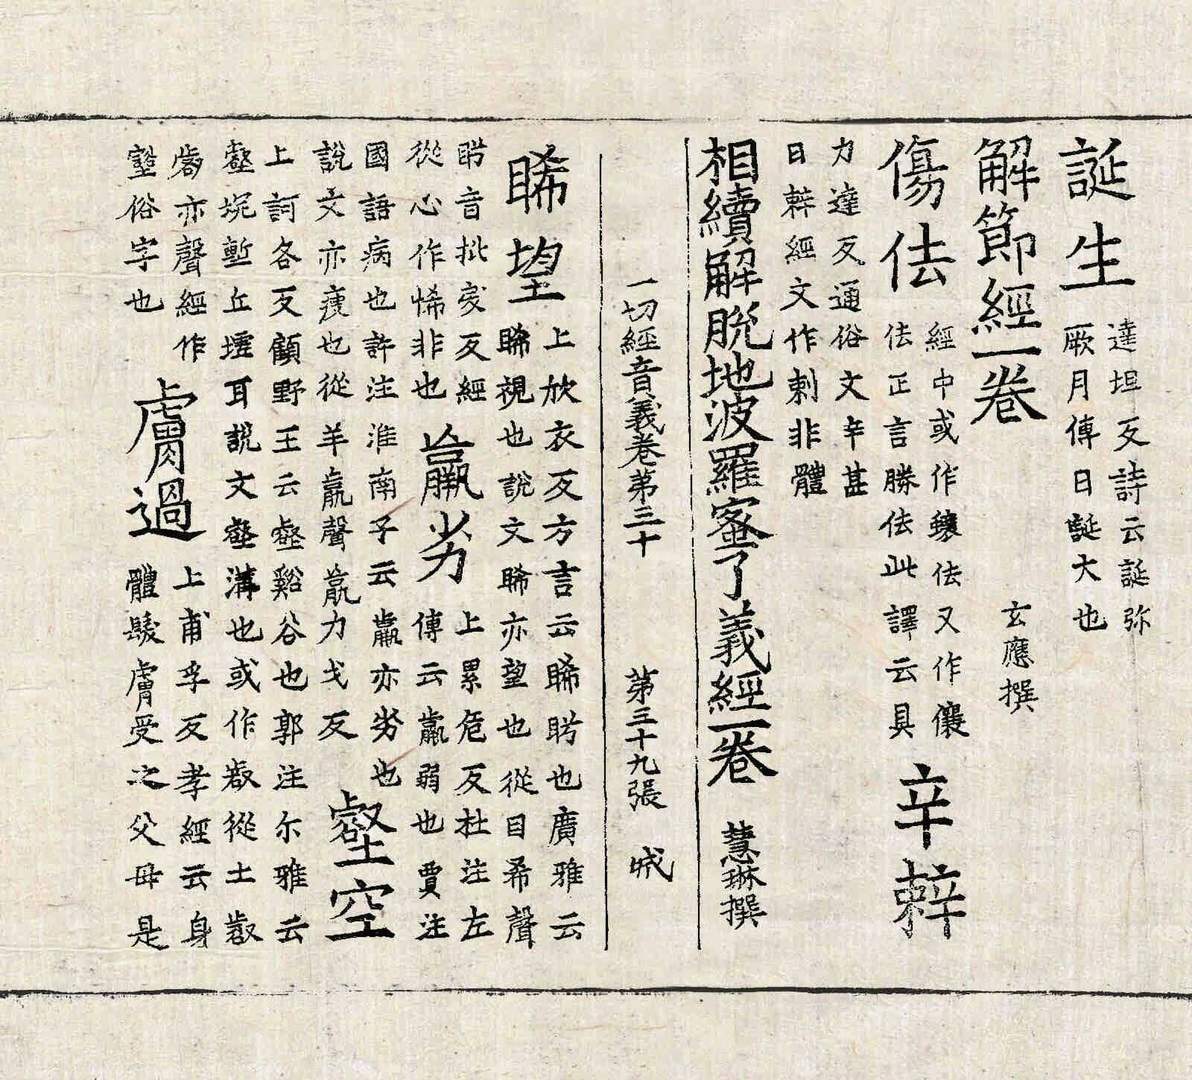 誕生 達坦反詩云誕弥
厥月傳曰誕大也
解節經一卷 玄應撰
傷佉 經中或作蠰佉又作儴
佉正言勝佉此譯云具 辛辢
力達反通俗文辛甚
曰辢經文作刺非體
相續解脫地波羅蜜了義經一卷 慧琳撰
一切經音義卷第三十 第三十九張 城
睎望 上欣衣反方言云睎眄也廣雅云
睎視也說文睎亦望也從目希聲
眄音批家反經
從心作悕非也 羸劣 上累危反杜注左
傳云羸弱也賈注
國語病也許注淮南子云羸亦劣也
說文亦瘦也從羊𣎆聲𣎆力戈反 壑空
上訶各反顧野王云壑谿谷也郭注尓雅云
壑坑塹丘墟耳說文壑溝也或作㕡從土㕡
㕡亦聲經作
壑俗字也 膚過 上甫孚反孝經云身
體髮膚受之父母是